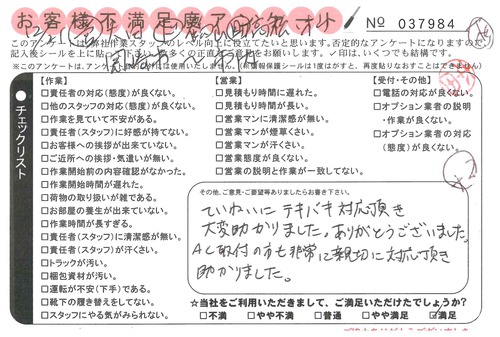 お客様不満足度アンケート
№ 037984
このアンケートは弊社作業スタッフのレベル向上に役立てたいと思います。否定的なアンケートになりますので
✓印は、いくつでも結構です。
チェックリスト
【作業】
□責任者の対応(態度)が良くない。
□他のスタッフの対応(態度)が良くない。
□作業を見ていて不安がある。
□責任者(スタッフ)に好感が持てない。
□お客様への挨拶が出来ていない。
□ご近所への挨拶・気遣いが無い。
□作業開始前の内容確認がなかった。
□作業開始時間が遅れた。
□荷物の取り扱いが雑である。
□お部屋の養生が出来ていない。
□作業時間が長すぎる。
□責任者(スタッフ)に清潔感が無い。
□責任者(スタッフ)が汗くさい。
□トラックが汚い。
□梱包資材が汚い。
□運転が不安(下手)である。
□靴下の履き替えをしてない。
□スタッフにやる気がみられない。
【営業】
□見積もり時間に遅れた。
□見積もり時間が長い。
□営業マンに清潔感が無い。
□営業マンが煙草くさい。
□営業マンが汗くさい。
□営業態度が良くない。
□営業の説明と作業が一致してない。
【受付・その他】
□電話の対応が良くない。
□オプション業者の説明
・作業が良くない。
□オプション業者の対応
(態度)が良くない。
その他、ご意見・ご要望等ありましたらお書き下さい。
ていねいにテキパキ対応頂き
大変助かりました。ありがとうございました。
AC取付の方も非常に親切に対応頂き
助かりました。
☆当社をご利用いただきまして、ご満足いただけたでしょうか?
□不満 □やや不満 □普通 □やや満足 ☑満足